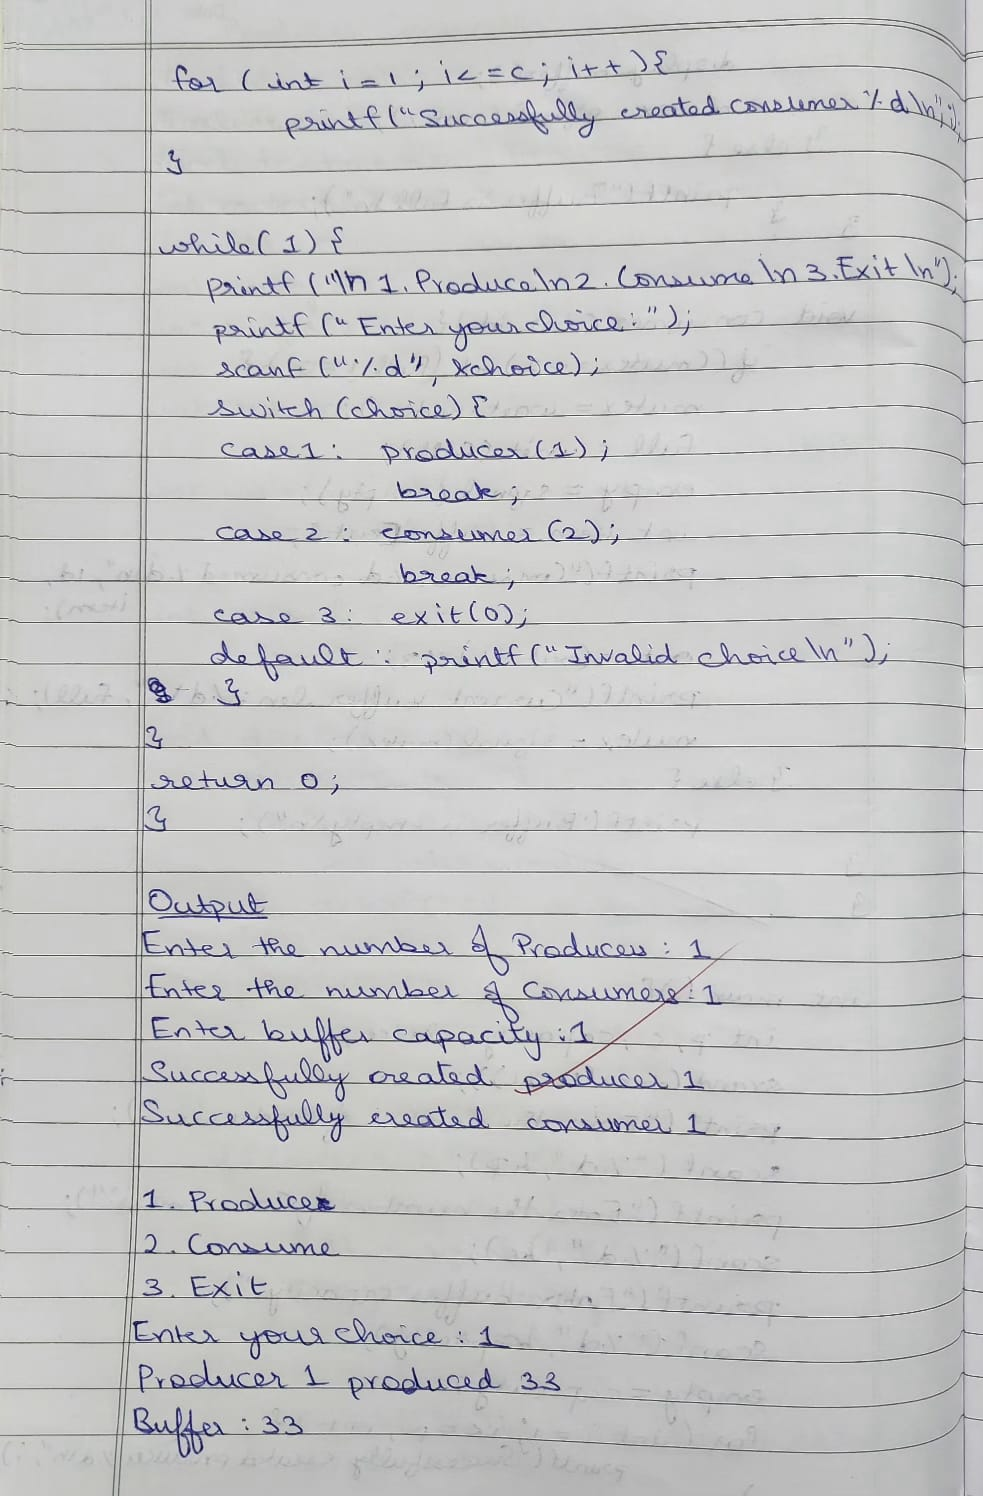 for (int i=1; i<=c; i++){
printf("Successfully created consumer %d\n",i);
}
while(1){
printf("\n 1. Produce\n2. Consume\n3. Exit\n");
printf("Enter your choice:");
scanf("%d", &choice);
switch(choice){
case1: producer(1);
break;
case 2: consumer(2);
break;
case 3: exit(0);
default: printf("Invalid choice\n");
}
}
return 0;
}
Output
Enter the number of Producers: 1
Enter the number of Consumers: 1
Enter buffer capacity: 1
Successfully created producer 1
Successfully created consumer 1
1. Produce
2. Consume
3. Exit
Enter your choice: 1
Producer 1 produced 33
Buffer: 33